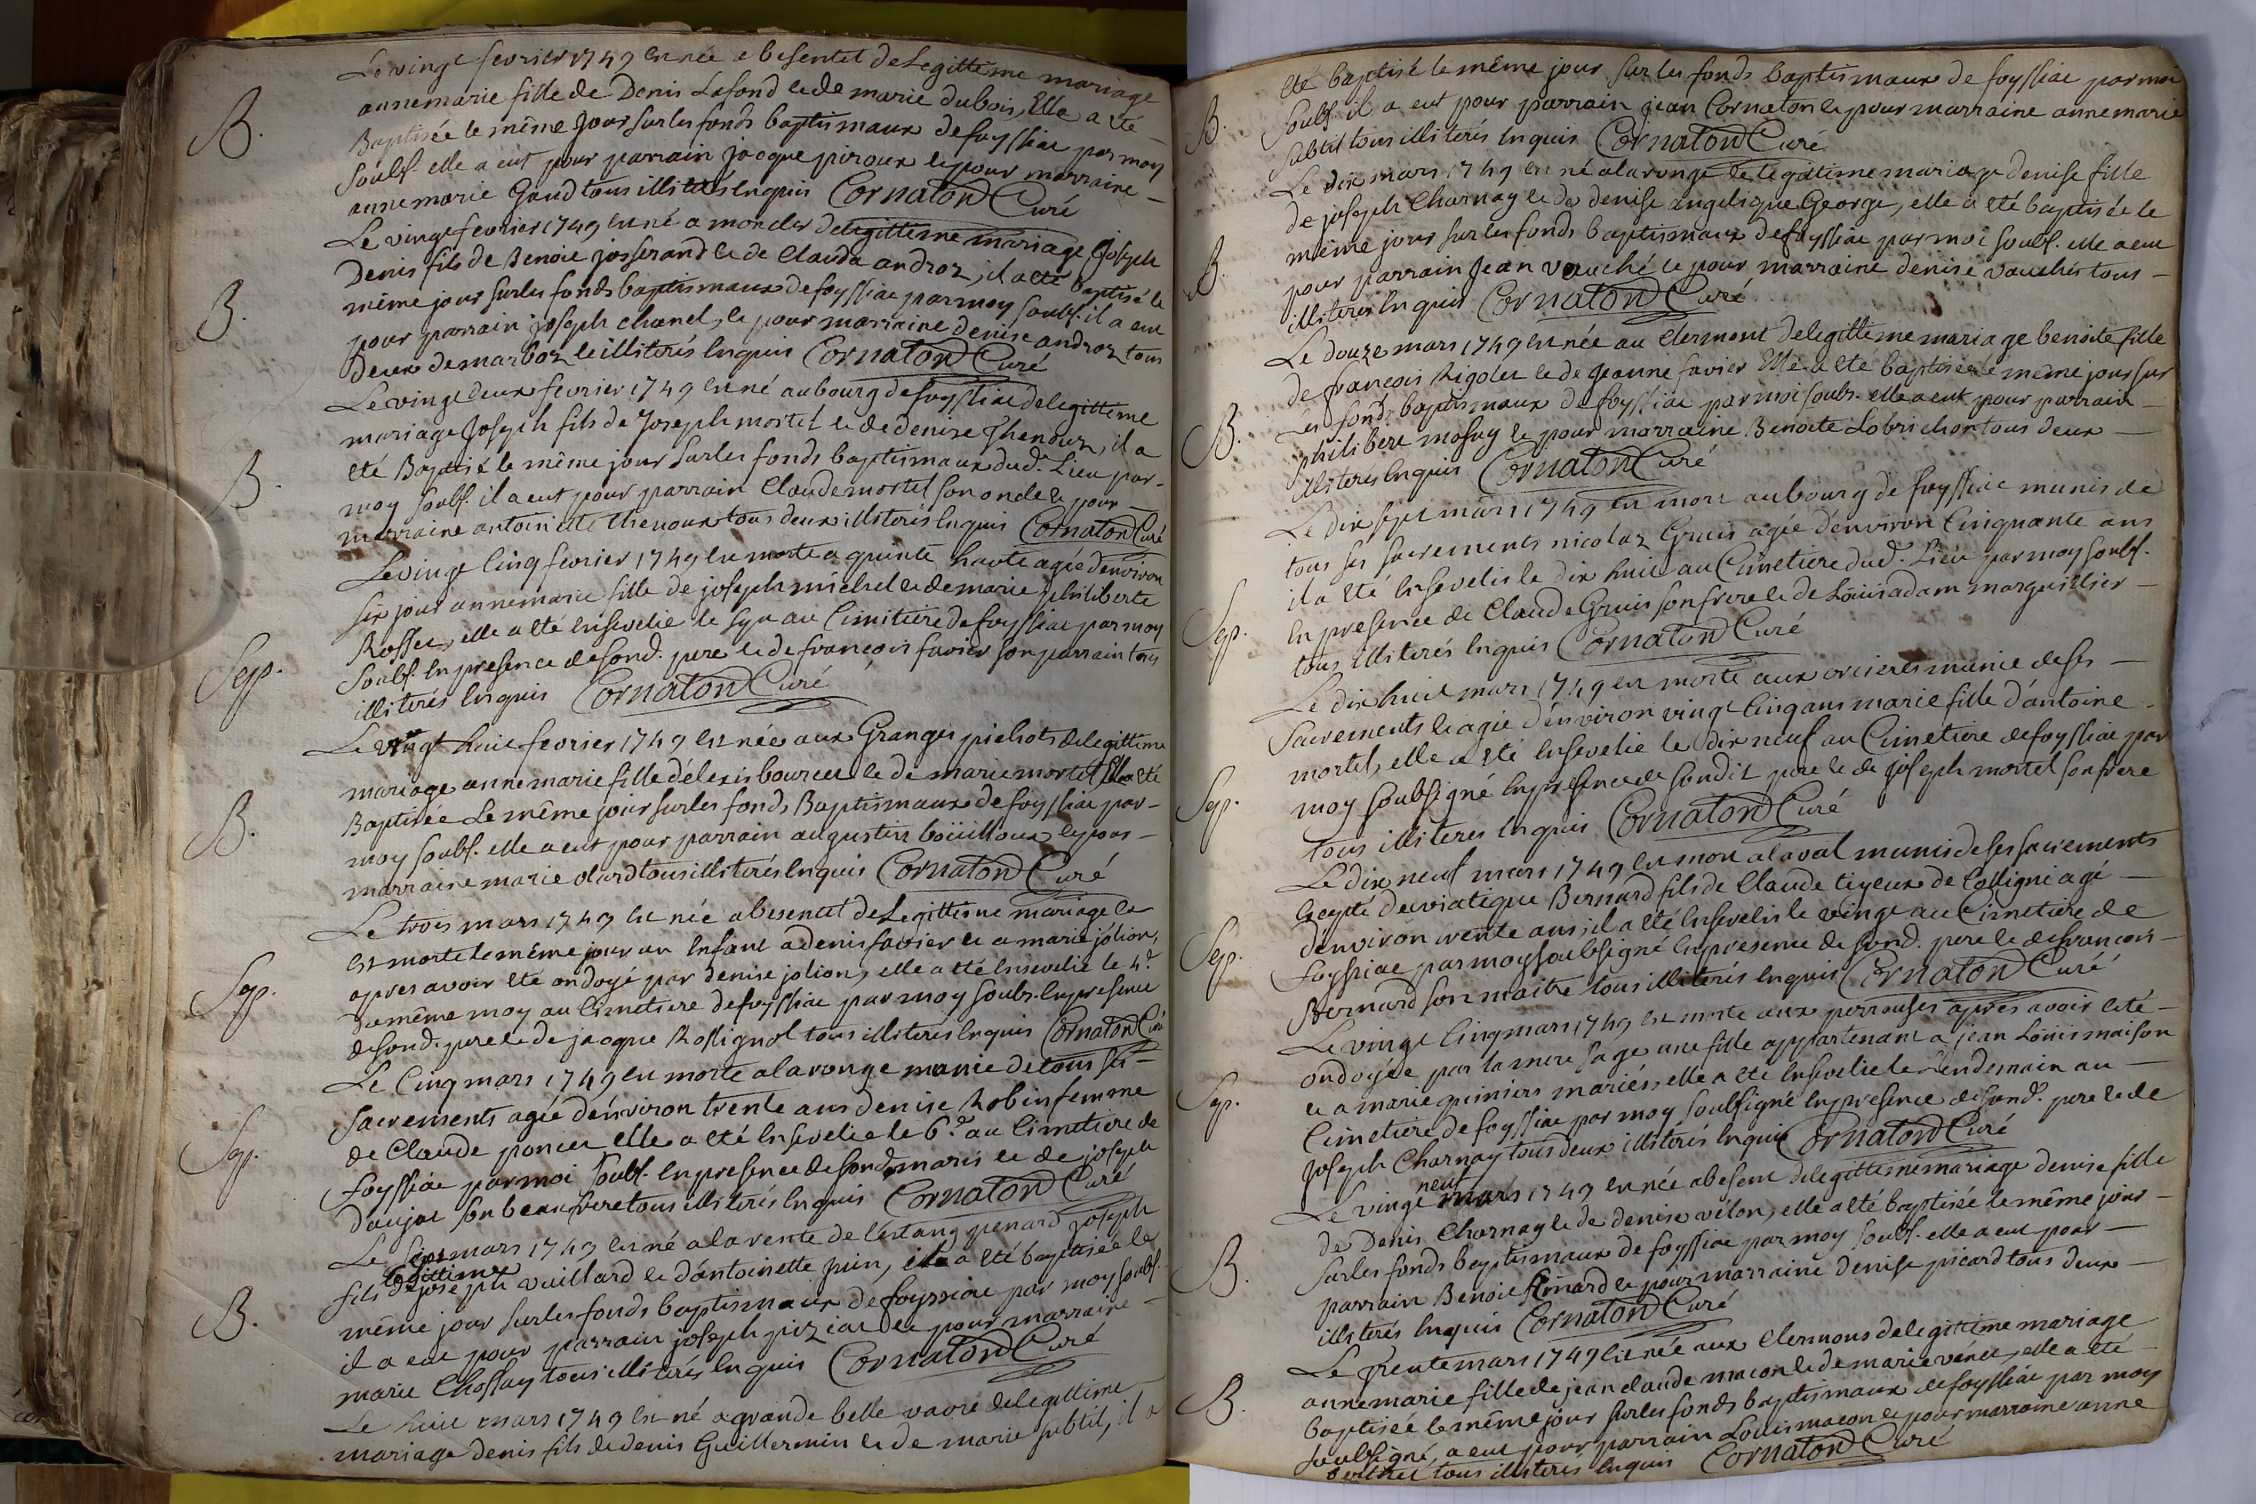 Le vingt fevrier 1749 est née a besentet de Legittime mariage
annemarie fille de Denis Lafond et de marie dubois, Elle a été
B.
Baptisée le même Jour sur les fonds baptismaux de foyssiac par moy
soubs. elle a eut pour parrain Jacque piroux et pour marraine
annemarie Gaud tous illiterés Enquis Cornaton Curé
Le vingt fevrier 1749 est né a de legittime mariage Joseph
Denis fils de Benoit josserand et de Clauda androz, il a été baptisé le
B.
même jour sur les fonds baptismaux de foyssiac par moy soubs. il a eut
pour parrain joseph chanel, et pour marraine denise androz tous
deux de marboz et illiterés Enquis Cornaton Curé
Le vingt deux fevrier 1749 est né au bourg de foyssiac de legittime
mariage Joseph fils de Joseph mortel et de denise thenoux, il a
B.
été Baptisé le même jour sur les fonds baptismaux dud. Lieu par
moy soubs. il a eut pour parrain Claude mortel son oncle et pour
marraine antoinette thenoux tous deux illiterés Enquis Cornaton Curé
Le vingt Cinq fevrier 1749 est morte a quinte haute agée d'environ
six jour annemarie fille de joseph michel et de marie philiberte
Rosset, elle a été Ensevelie le au Cimitiere de foyssiac par moy
Sep.
soubs. En presence de sond. pere et de francois favier son parrain tous
illiterés Enquis Cornaton Curé
Le vingt huit fevrier 1749 est née aux Granges pichots de legittime
mariage annemarie fille d'elexis bourcet et de marie mortel Elle a été
B.
Baptisée Le même jour sur les fonds Baptismaux de foyssiac par
moy soubs. elle a eut pour parrain augustin boüilloux et pour
marraine marie olard tous illiterés Enquis Cornaton Curé
Le trois mars 1749 est née a besentet de Legittime mariage et
est morte le même jour un Enfant a denis favier et a marie jolion,
Sep.
apres avoir été ondoyé par denise jolion, elle a été Ensevelie le 4.e
du même moy au Cimetiere de foyssiac par moy soubs. En presence
de sond. pere et de jacque Rossignol tous illiterés Enquis Cornaton Curé
Le Cinq mars 1749 est morte a laronge munie de tous ses
sacrements agée d'environ trente ans denise Robin femme
Sep.
de Claude poncet Elle a été Ensevelie le 6.e au Cimetiere de
foyssiac par moi soubs. En presence de sond. maris et de joseph
daujat son beau frere tous illiterés Enquis Cornaton Curé
Le sept mars 1749 est né a la vente de l'estang penard joseph
fils legittime de joseph vuillard et d'antoinette Juin, il a été baptisée le
B.
même jour sur les fonds baptismaux de foyssiac par moy soubs.
il a eut pour parrain joseph piziat et pour marraine
marie Chossay tous illiterés Enquis Cornaton Curé
Le huit mars 1749 est né a grande belle vavre de legittime
mariage denis fils de denis Guillermin et de marie subtil, il a
été baptisé le même jour sur les fonds baptismaux de foyssiac par moi
B.
soubs. il a eut pour parrain jean Cornaton et pour marraine annemarie
subtil tous illiterés Enquis Cornaton Curé
Le dix mars 1749 est né a laronge de legittime mariage denise fille
de joseph Charnay et de denise angelique George, elle a été baptisée le
B.
même jour sur les fonds baptismaux de foyssiac par moi soubs. elle a eut
pour parrain Jean vouché et pour marraine denise vouchés tous
illiterés Enquis Cornaton Curé
Le douze mars 1749 est née au Clermont de legittime mariage benoite fille
de francois Rigolet et de Jeanne favier Elle a été baptisée le même jour sur
B.
les fonds baptismaux de foyssiac par moi soubs. elle a eut pour parrain
philibert mosny et pour marraine Benoite Lobrichon tous deux
illiterés Enquis Cornaton Curé
Le dix sept mars 1749 est mort au bourg de foyssiac munis de
tous ses sacrements nicolaz Gruis agée d'environ Cinquante ans
il a été Ensevelis le dix huit au Cimetiere dud. Lieu par moy soubs.
Sep.
En presence de Claude Gruis son frere et de Loüis adam marguillier
tous illiterés Enquis Cornaton Curé
Le dix huit mars 1749 est morte aux orcieres munie de ses
Sacrements et agée d'environ vingt Cinq ans marie fille d'antoine
mortel, elle a été Ensevelie le dix neuf au Cimetiere de foyssiac par
Sep.
moy soubsigné En presence de sondit pere et de Joseph mortel son frere
tous illiterés Enquis Cornaton Curé
Le dix neuf mars 1749 est mort a laval munis de ses sacrements
Excepté du viatique Bernard fils de Claude tiyeux de Colligni agé
Sep.
d'environ trente ans, il a été Ensevelis le vingt au Cimetiere de
foyssiac par moy soubsigné En presence de sond. pere et de francois
Bernard son maitre tous illiterés Enquis Cornaton Curé
Le vingt Cinq mars 1749 est morte aux perrouses apres avoir été
ondoyée par la mere sage une fille appartenant a jean Loüis maison
Sep.
et a marie mariés, elle a été Ensevelie le Lendemain au
Cimetiere de foyssiac par moy soubsigné En presence de sond. pere et de
Joseph Charnay tous deux illiterés Enquis Cornaton Curé
Le vingt neuf mars 1749 est née a besent de legittime mariage denise fille
de Denis Charnay et de denise vélon, elle a été baptisée le même jour
B.
sur les fonds baptismaux de foyssiac par moy soubs. elle a eut pour
parrain Benoit et pour marraine denise picard tous deux
illiterés Enquis Cornaton Curé
Le trente mars 1749 est née aux Clermons de legittime mariage
annemarie fille de jean claude macon et de marie venet, elle a été
B.
baptisée le même jour sur les fonds baptismaux de foyssiac par moy
soubsigné, a eut pour parrain Louis macon et pour marraine anne
tous illiterés Enquis Cornaton Curé